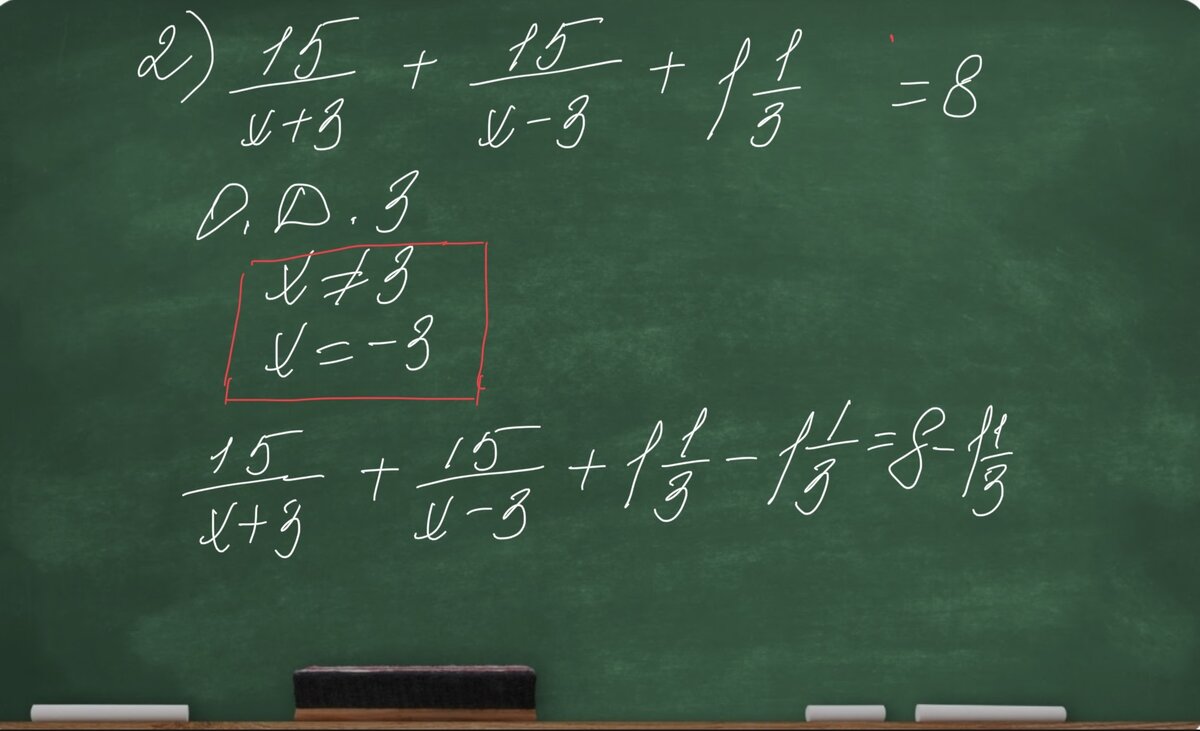 2) 15/(x+3) + 15/(x-3) + 1 1/3 = 8
О.Д.З
x≠3
x=-3
15/(x+3) + 15/(x-3) + 1 1/3 - 1 1/3 = 8 - 1 1/3